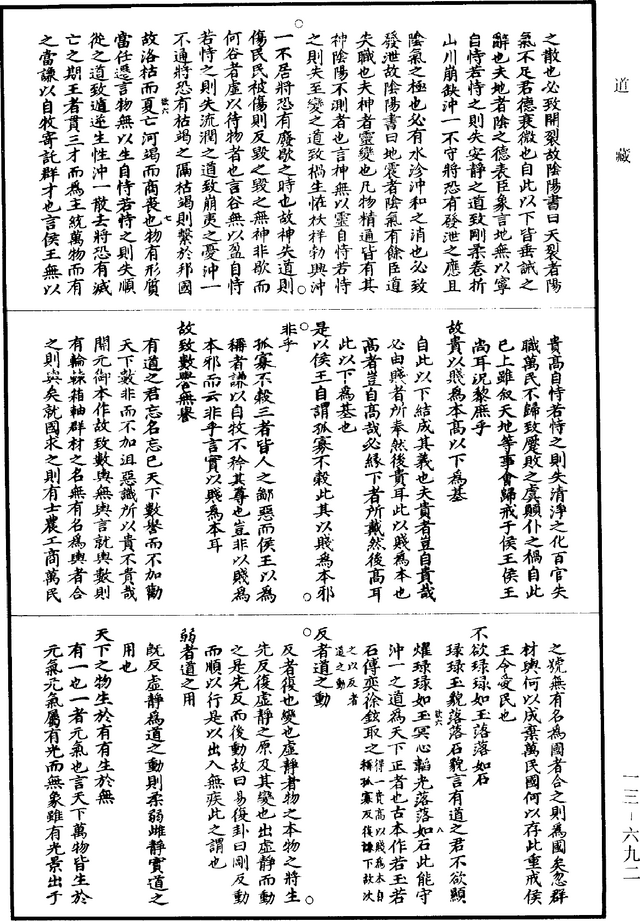 道藏
之散也必致開裂故陰陽書曰天裂者陽
氣不足君德衰微也自此以下皆垂誡之
辭也夫地者陰之德表臣象言地無以寧
自恃若恃之則失安静之道致剛柔卷折
山川崩缺沖一不守將恐有發泄之應且
陰氣之極也必有水沴沖和之消也必致
發泄故陰陽書曰地震者陰氣有餘臣道
失職也夫神者靈變也凡物精通皆有其
神陰陽不測者也言神無以靈自恃若恃
之則失至變之道致禍生恠狀祥勃興沖
一不居將恐有廢歇之時也故神失道則
傷民民被傷則反毀之毀之無神非歇而
何谷者虛以待物者也言谷無以盈自恃
若恃之則失流潤之道致崩夷之憂沖一
不通將恐有枯竭之隔枯竭則繫於邦國
故洛枯而夏亡河竭而商喪也物有形質
欲六
七
當任慿言物無以生自恃若恃之則失順
從之道致適逆生性沖一散去將恐有滅
亡之期王者貫三才而為主統萬物而有
之當謙以自牧寄託群才也言侯王無以
貴高自恃若恃之則失清淨之化百官失
職萬民不歸致蹷敗之虞顛仆之禍自此
已上雖叙天地等事會歸戒于侯王侯王
尚耳況黎庶乎
故貴以賤為本高以下為基
自此以下結成其義也夫貴者豈自貴哉
必由賤者所奉然後貴耳此以賤為本也
高者豈自高哉必緣下者所戴然後高耳
此以下為基也
是以侯王自謂孤寡不穀此其以賤為本邪
非乎
孤寡不穀三者皆人之鄙惡而侯王以為
稱者謙以自牧不矜其尊也豈非以賤為
本邪而云非乎言實以賤為本耳
故致數譽無譽
有道之君忘名忘已天下數譽而不加勸
天下數非而不加沮惡識所以貴不貴哉
開元御本作故致數輿無輿言就輿數則
有輪轅箱軸群材之名無有名為輿者合
之則輿矣就國求之則有士農工商萬民
之號無有名為國者合之則為國矣忽群
材輿何以成棄萬民國何以存此重戒侯
王令愛民也
不欲琭琭如玉落落如石
琭琭玉貌落落石貌言有道之君不欲顯
欲六
八
燿琭琭如玉冥心韜光落落如石此能守
沖一之道為天下正者也古本作若玉若
石傅奕徐鉉取之
反者道之動
反者復也變也虛靜者物之本物之將生
先反復虛靜之原及其變也出虛靜而動
之是先反而後動故曰易復卦曰剛反動
而順以行是以出入無疾此之謂也
弱者道之用
既反虛靜為道之動則柔弱雌靜實道之
用也
天下之物生於有有生於無
有一也一者元氣也言天下萬物皆生於
元氣元氣屬有光而無象雖有光景出于
一三-六九二